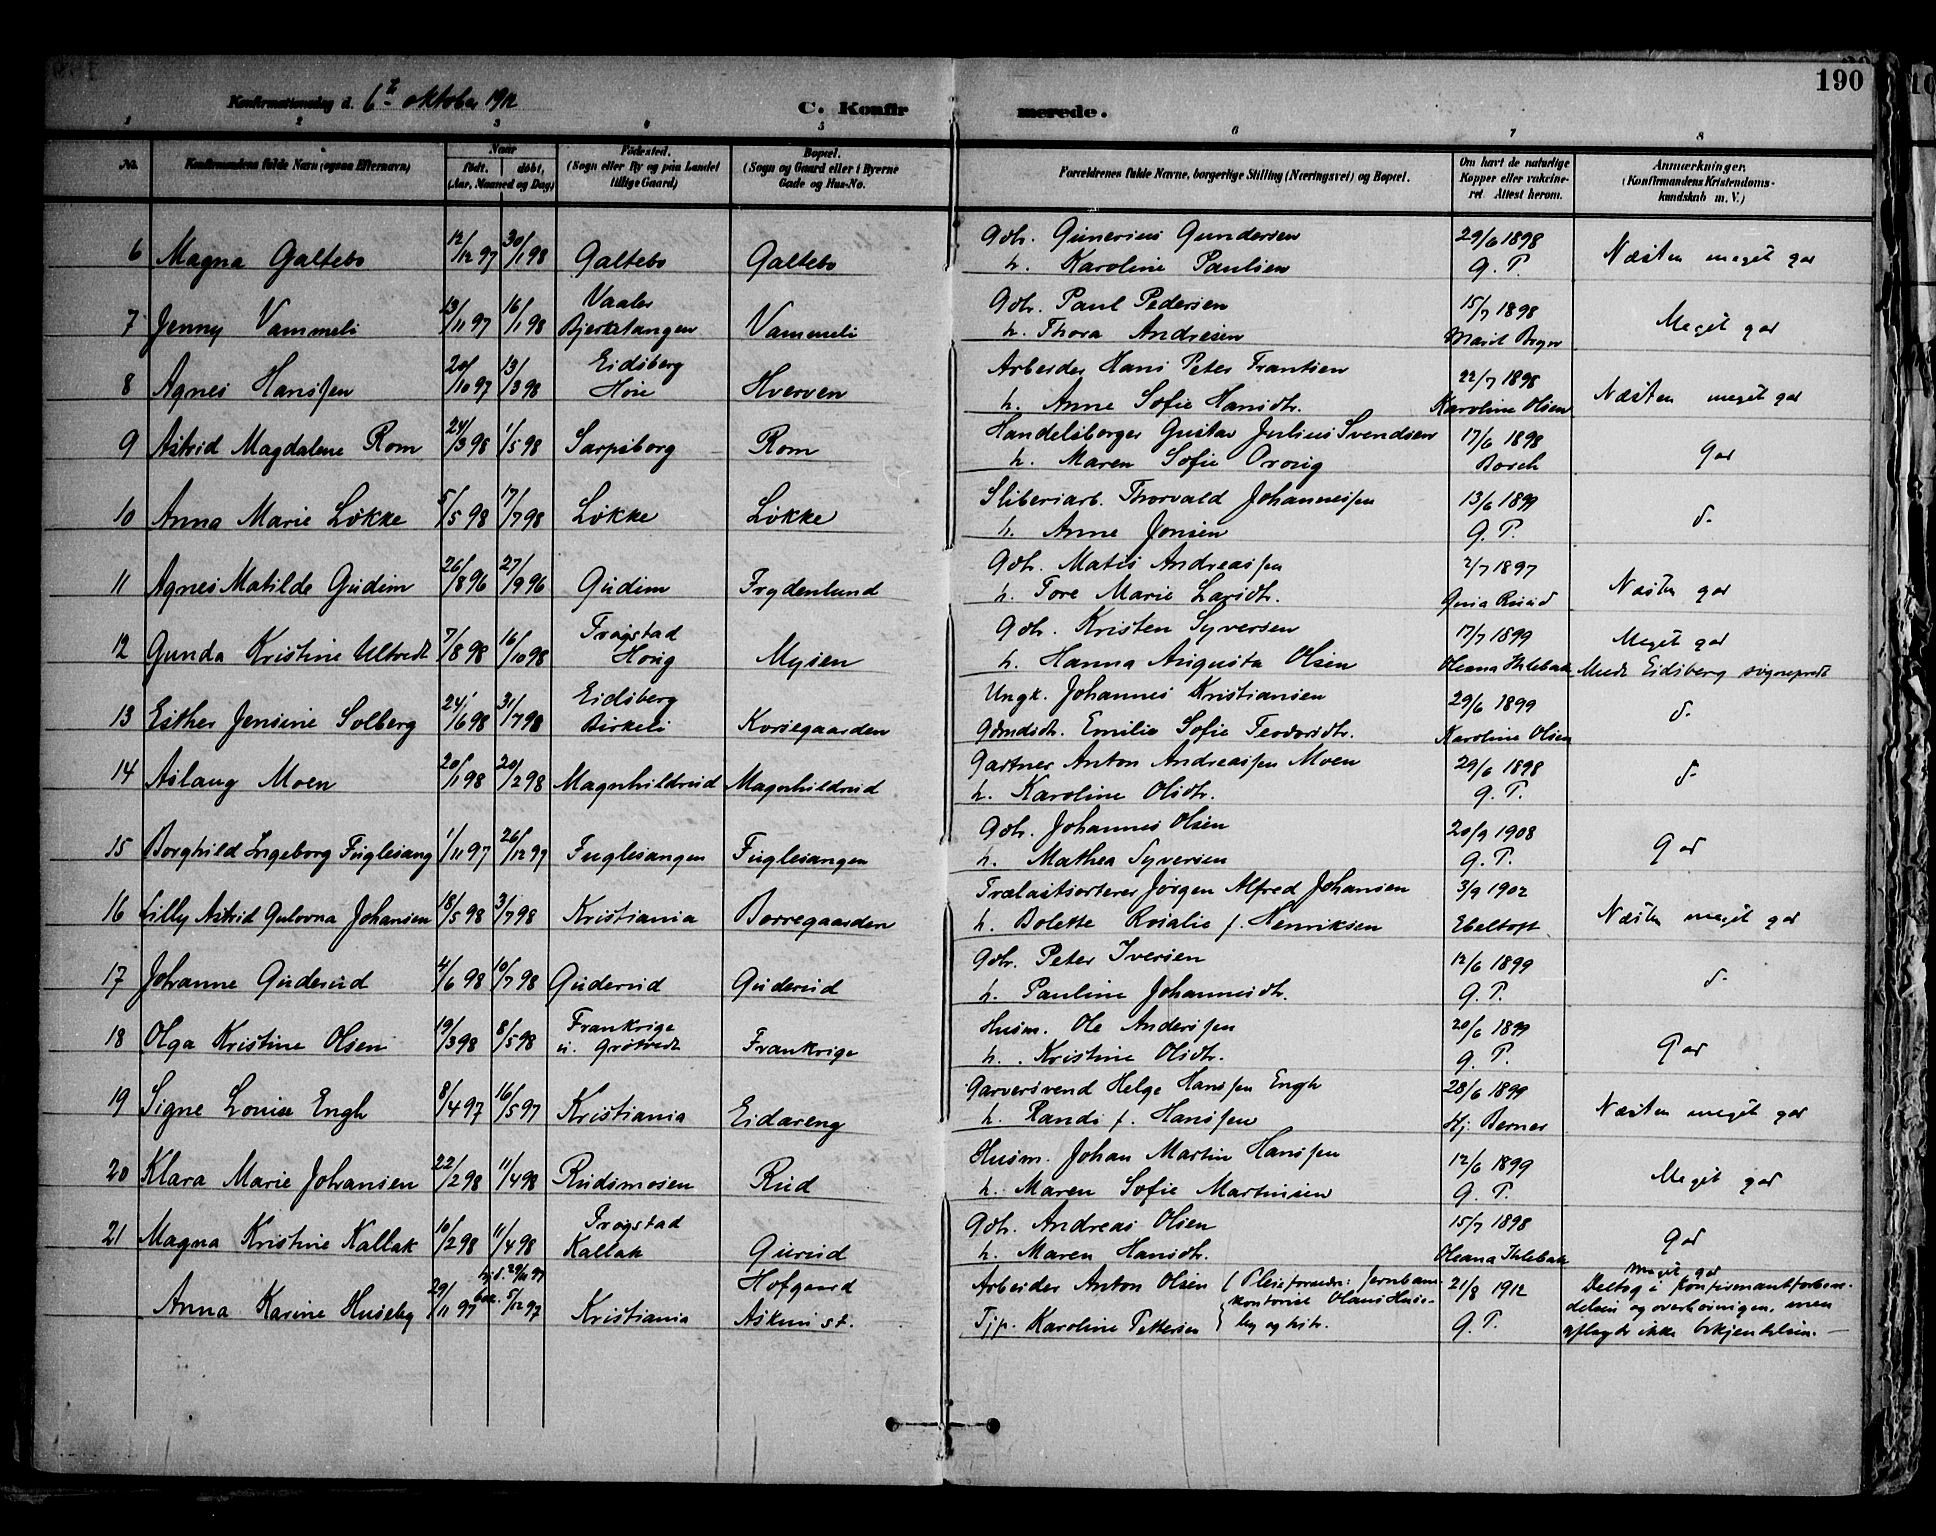 190
Konfirmationsdag d. 6te oktober 1912
C. Konfirmerede.
1 2 3 4 5 6 7 8
No. Konfirmandens fulde Navn (ogsaa Efternavn) Naar født, døbt, (Aar, Maaned og Dag) Fødested. (Sogn eller By og paa Landet tillige Gaard) Bopæl. (Sogn og Gaard eller i Byerne Gade og Hus-No. Forældrenes fulde Navne, borgerlige Stilling (Næringsvei) og Bopæl. Om havt de naturlige Kopper eller vaccineret. Attest herom. Anmærkninger. (Konfirmandens Kristendomskundskab m. V.)
6 Magna Galtebo 12/12 97 30/1 98 Galtebo Galtebo Gbr. Gunerius Gundersen 29/6 1898 Næsten meget god
h. Karoline Paulsen G. P.
7 Jenny Vammeli 13/11 97 16/1 98 Vaaler Bjerketangen Vammeli Gbr. Paul Pedersen 15/7 1898 Meget god
h. Thora Andresen Marit Berger
8 Agnes Hanssen 20/10 97 13/3 98 Eidsberg Hverven Arbeider Hans Peter Frantsen 22/7 1898 Næsten meget god
h. Anne Sofie Hansdtr. Karoline Olsen
9 Astrid Magdalene Rom 24/3 98 1/5 98 Sarpsborg Rom Handelsborger Gustav Julius Svendsen 17/6 1898 God
h. Maren Sofie Borch
10 Anna Marie Løkke 5/5 98 17/7 98 Løkke Løkke Sliberiarb. Thorvald Johannessen 13/6 1899 d-
h. Anne Jonsen G. P.
11 Agnes Matilde Gudim 26/8 96 27/9 96 Gudim Frydenlund Gbr. Matis Andreassen 2/7 1897 Næsten god
h. Tore Marie Larsdtr.
12 Gunda Kristine Ultvedt 7/8 98 16/10 98 Trøgstad Mysen Gbr. Kristen Syversen 17/7 1899 Meget god
h. Hanna Augusta Olsen Oleana Ihlebæk Meldt Eidsberg sogneprest
13 Esther Jensine Solberg 24/6 98 31/7 98 Eidsberg Birkeli Korsegaarden Ungk. Johannes Kristiansen 29/6 1899 d-
Gdmdsdtr. Emilie Sofie Teodorsdtr. Karoline Olsen
14 Aslaug Moen 20/1 98 20/2 98 Magnhildrud Magnhildrud Gartner Anton Andreassen Moen 29/6 1898 d-
h. Karoline Olsdtr. G. P.
15 Borghild Ingeborg Fuglesang 1/11 97 26/12 97 Fuglesangen Fuglesangen Gbr. Johannes Olsen 20/9 1908 God
h. Mathea Syversen G. P.
16 Lilly Astrid Gulovna Johansen 18/5 98 3/7 98 Kristiania Borregaarden Trælastsorterer Jørgen Alfred Johansen 3/9 1902 Næsten meget god
h. Bolette Rosalie f. Henriksen Ebeltoft
17 Johanne Guderud 4/6 98 10/7 98 Guderud Guderud Gbr. Peter Iversen 12/6 1899 d-
h. Pauline Johannesdtr. G. P.
18 Olga Kristine Olsen 19/3 98 8/5 98 Frankrige u. Grøtvedt Frankrige Husm. Ole Anderssen 20/6 1899 God
h. Kristine Olsdtr. G. P.
19 Signe Louise Engh 8/4 97 16/5 97 Kristiania Eidareng Garversvend Helge Hanssen Engh 28/6 1899 Næsten meget god
h. Randi f. Hanssen Hj. Berner
20 Klara Marie Johansen 22/2 98 11/4 98 Rudsmosen Rud Husm. Johan Martin Hanssen 12/6 1899 Meget god
h. Maren Sofie Martinsen G. P.
21 Magna Kristine Kallak 10/2 98 11/4 98 Trøgstad Kallak Gurud Gbr. Andreas Olsen 15/7 1898 God
h. Maren Hansdtr. Oleana Ihlebæk
Anna Karine Huseby 29/11 97 hjd. 29/11 97 5/12 97 Kristiania Hofgaard Askim st. Arbeider Anton Olsen { Pleieforældre: Jernbane- 21/8 1912 Meget god
Tjp. Karoline Pettersen kontorist Olaus Huseby og hstr. G. P. Deltog i konfirmantforberedelsen og overhøringen, men aflagde ikke bekjendelsen. —